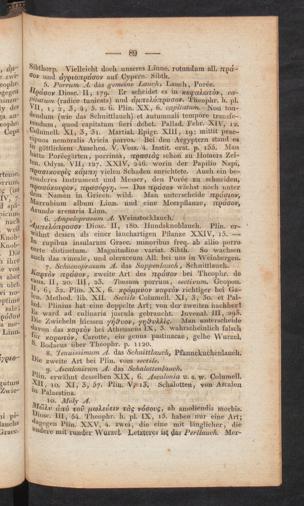 — 89 —
Sibthorp. Vielleicht doch unseres Linne, rotundum all. πρά-
σον und ἀγριοπράσον auf Cypern. Sibth.
5. Porrum A. das gemeine Lauch, Lauch, Porée.
Πράσον Diosc. II, 179. Er scheidet es in κεφαλωτόν, ca-
pitatum (radice tunicata) und ἀμπελόπρασον. Theophr. h. pl.
VII, 1, 2, 3, 4, 5. u. 6. Plin. XX, 6. capitatum. Non ton-
sendum (wie das Schnittlauch) et autumnali tempore transfe-
rendum, quod capitatum fieri debet. Pallad. Febr. XIV, 12.
Columell. XI, 3, 31. Martial. Epigr. XIII, 19: mittit prae-
cipuos nemoralis Aricia porros. Bei den Aegyptern stand es
in göttlichem Ansehen. V. Vom. 4. Instit. erst. p. 155. Man
hatte Porréegärten, porrinia, πρασιάς schon zu Homers Zei-
ten. Odym. VII; 127. XXIV, 246. worin der Papilio Napi,
πρασοκουρὶς κάμπη vielen Schaden anrichtete. Auch ein be-
sonderes Instrument und Messer, den Porée zu schneiden,
πρασόκουρον, πρασόυργ. — Das πράσον wächst noch unter
dem Namen in Griech. wild. Man unterscheide πράσιον,
Marrubium album Linn. und eine Meerspflanze, πράσον,
Arundo arenaria Linn.
6. Ampeloprasum A. Weinstocklauch.
Ἀμπελόπρασον Diosc. II, 180. Hundsknoblauch. Plin. er-
wähnt dessen als einer lauchartigen Pflanze XXIV, 15. —
In rupibus insularum Graec. minoribus freq. ab allio porro
certe distinctum. Magnitudine variat. Sibth. So wachsen
auch das vineale, und oleraceum All. bei uns in Weinbergen.
7. Schoenoprasum A. das Suppenlauch, Schnittlauch.
Καρτὸν πράσον, zweite Art des πράσον bei Theophr. de
caus. II, 20, III, 23. Tonsum porrum, sectivum. Geopon.
II, 6, 32. Plin. XX, 6. πράσιμον καρτὸν richtiger bei Ga-
len. Method. lib. XII. Sectile Columell. XI, 3, 30. et Pal-
lad. Plinius hat eine doppelte Art; von der zweiten nachher!
Es ward ad culinaria juscula gebraucht. Juvenal. III, 293.
Die Zwiebeln hiessen γήθυον, γηθυλλίς. Man unterscheide
davon das καρτὸν bei Athenaeus IX, 3. wahrscheinlich falsch
für καρωτόν, Carotte, ein genus pastinacae, gelbe Wurzel.
S. Bodaeus über Theophr. p. 1120.
8. Tenuissimum A. das Schnittlauch, Pfannekuchenlauch.
Die zweite Art bei Plin. von sectile.
9. Ascalonicum A. das Schalottenlauch.
Plin. erwähnt desselben XIX, 6. Ascalonia u. s. w. Columell.
XII, 10. XI, 3, 57. Plin. V, 13. Schalotten, von Ascalon
in Palaestina.
10. Moly A.
Μῶλυ ἀπὸ τοῦ μωλύειν τὰς νόσους, ab amoliendis morbis.
Diosc. III, 54. Theophr. h. pl. IX, 15. haben nur eine Art;
dagegen Plin. XXV, 4. zwei, die eine mit länglicher, die
andere mit runder Wurzel. Letzteres ist das Perllauch. Mer-